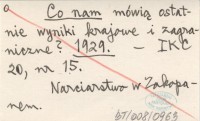 Co nam mówią ostat-
nie wyniki krajowe i zagra-
niczne? 1929. – IKC
20, nr 15.
Narciarstwo w Zakopa-
nem.
bT/008/0963